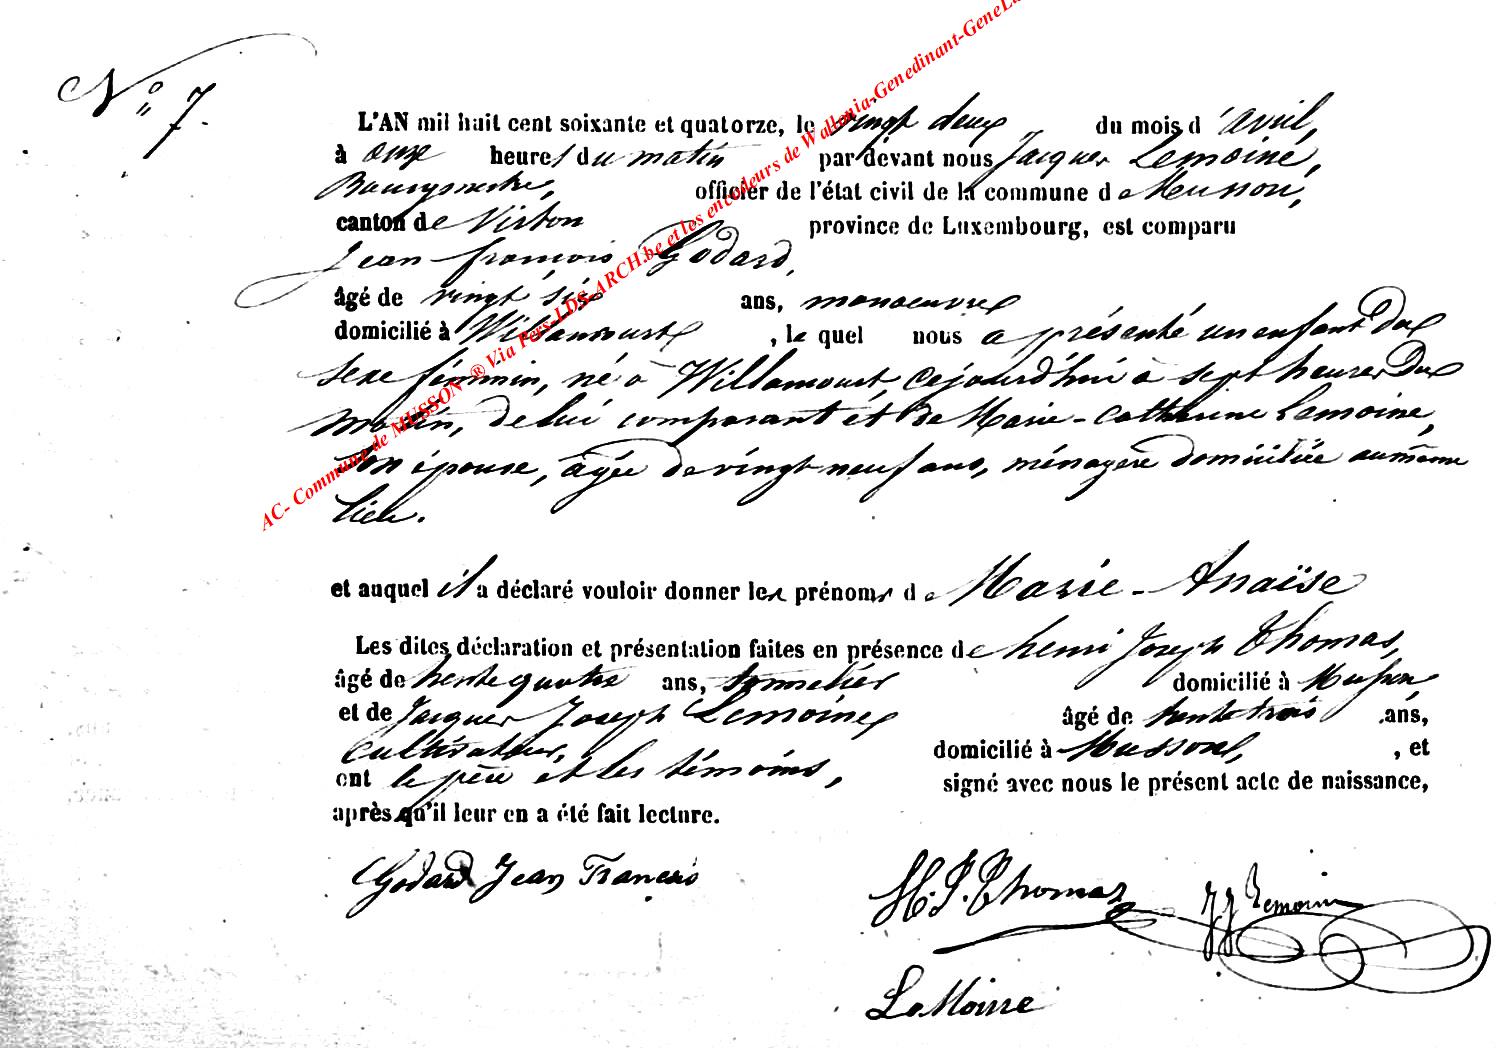 N° 7.
L'AN mil huit cent soixante et quatorze, le vingt deux du mois d'avril,
à onze heures du matin par devant nous Jacques Lemoine,
Bourgmestre, officier de l'état civil de la commune de Musson,
canton de Virton province de Luxembourg, est comparu
Jean françois Godard,
âgé de vingt six ans, manoeuvre
domicilié à Willancourt, le quel nous a présenté un enfant du
sexe féminin, né à Willancourt, cejourd'hui à sept heures du
matin, de lui comparant et de Marie-Catherine Lemoine,
son épouse, âgée de vingt neuf ans, ménagère domiciliée au même
lieu.
et auquel il a déclaré vouloir donner les prénoms de Marie-Anaïse
Les dites déclaration et présentation faites en présence de henri Joseph Thomas,
âgé de trente quatre ans, tonnelier domicilié à Musson,
et de Jacques Joseph Lemoine âgé de trente trois ans,
cultivateur, domicilié à Musson, , et
ont le père et les témoins, signé avec nous le présent acte de naissance,
après qu'il leur en a été fait lecture.
Godard Jean Francois
H. J. Thomas
J J Lemoine
LeMoine
AC- Commune de MUSSON ® Via Pers-LDS-ARCH.be et les encodeurs de Wallonia-Genedinant-GeneLu